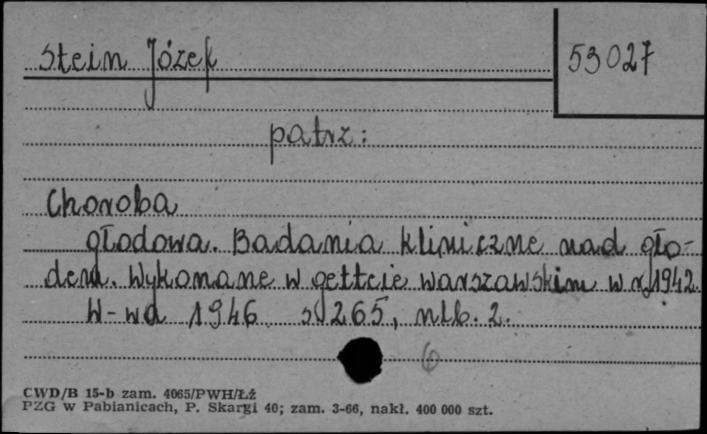 Stein Józef
53027
patrz:
Choroba
głodowa. Badania kliniczne nad gło-
dem. Wykonane w getcie warszawskim w r. 1942.
W-wa 1946 s 265, nlb. 2.
6
CWD/B 15-b zam. 4065/PWH/Łż
PZG w Pabianicach, P. Skargi 40; zam. 3-66, nakł. 400 000 szt.